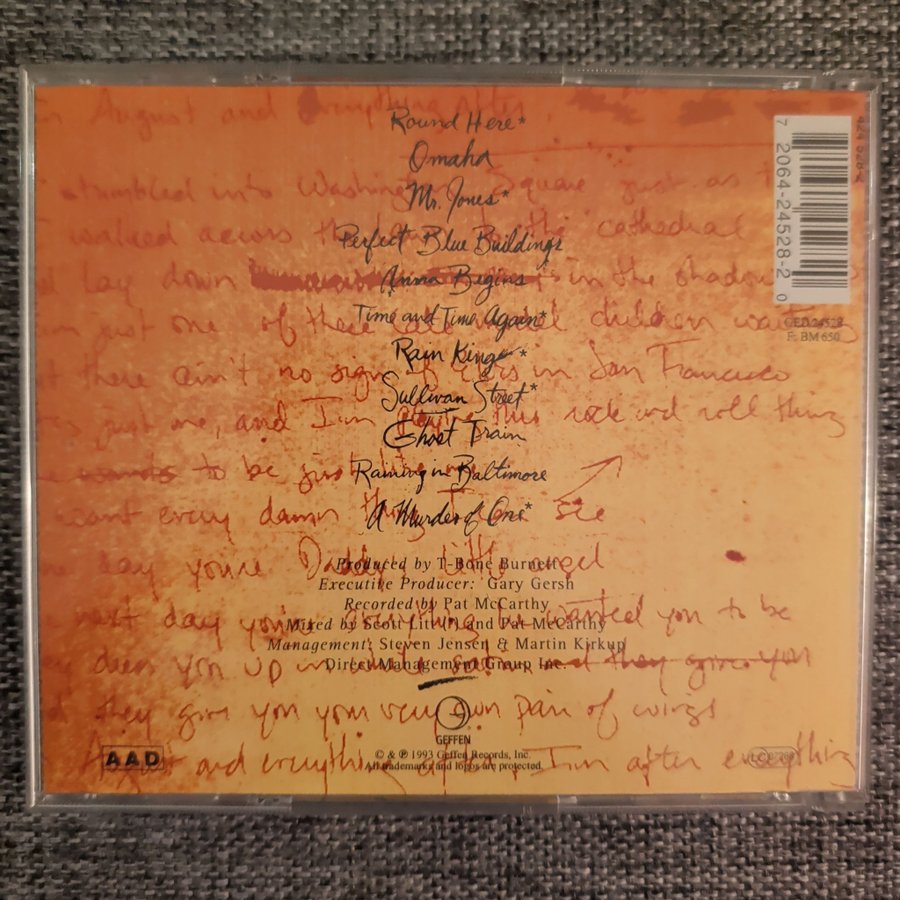 August and everything after
Round Here*
Omaha
stumbled into Washington Square just as
Mr. Jones*
walked across the cathedral
Perfect Blue Buildings
lay down in the shadow
Anna Begins
just one of these children waiting
Time and Time Again*
Rain King*
there ain't no sign of in San Francisco
Sullivan Street*
just one, and I'm playing this rock and roll thing
Ghost Train
wants to be just
Raining in Baltimore
want every damn thing I can see
A Murder of One*
day you're Daddy's little angel
Produced by T-Bone Burnett
Executive Producer: Gary Gersh
Recorded by Pat McCarthy
next day you're everything I wanted you to be
Mixed by Scott Litt (*) and Pat McCarthy
Management: Steven Jensen & Martin Kirkup
dress you up in white and they give you
Direct Management Group Inc.
they give you your very own pair of wings
GEFFEN
August and everything after I'm after everything
AAD
© & ℗ 1993 Geffen Records, Inc.
All trademarks and logos are protected.
LC
7 2064-24528-2 0
GED 24528
F: BM 650